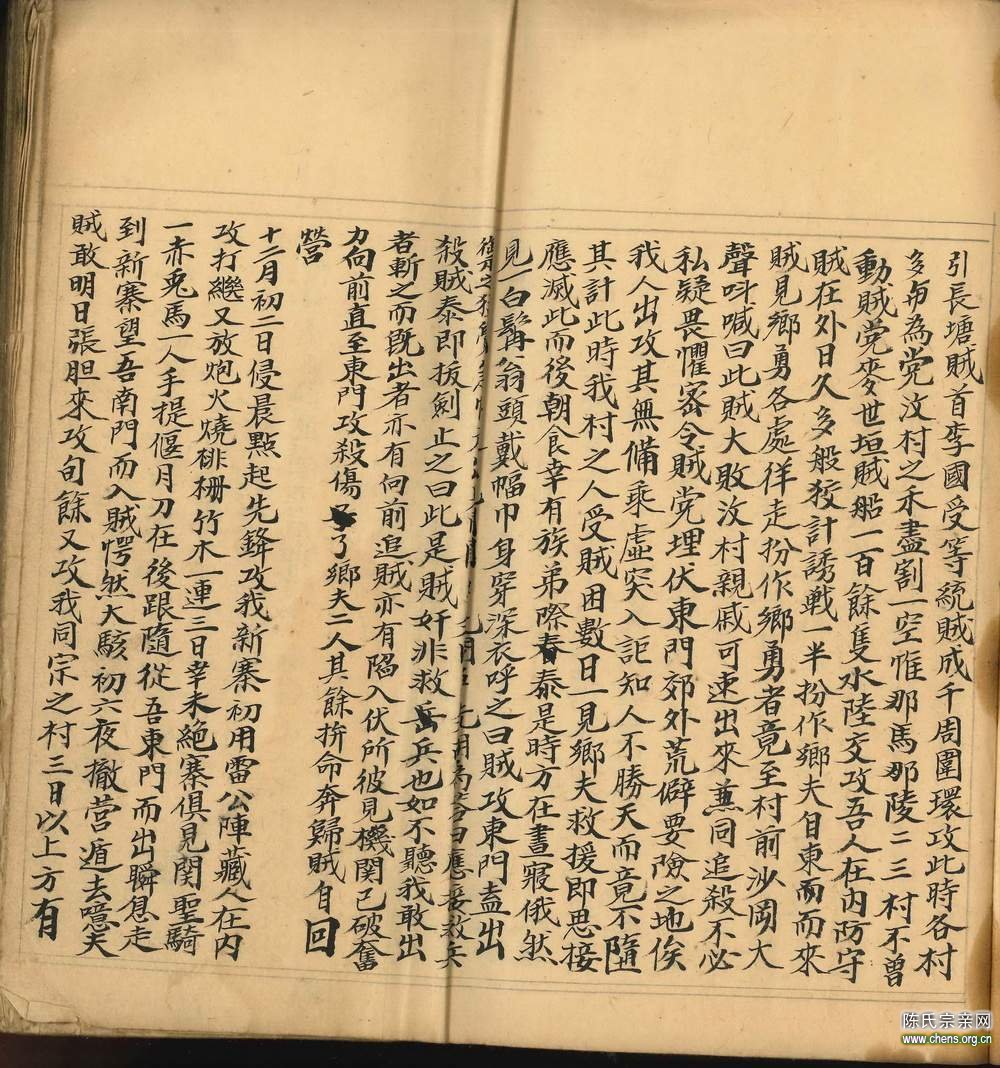 引長塘賊首李國受等統賊成千周圍環攻此時各村
多甪為党汶村之禾盡割一空惟那馬那陵二三村不曾
動賊党麥世垣賊船一百餘隻水陸交攻吾人在內防守
賊在外日久多般狡計誘戰一半扮作鄉夫自東而而來
賊見鄉勇各處徉走扮作鄉勇者竟至村前沙岡大
聲呌喊曰此賊大敗汶村親戚可速出來兼同追殺不必
私疑畏懼密令賊党埋伏東門郊外荒僻要險之地俟
我人出攻其無備乘虛突入詎知人不勝天而竟不隨
其計此時我村之人受賊困數日一見鄉夫救援即思接
應滅此而後朝食幸有族弟際春泰是時方在晝寢俄然
見一白鬚翁頭戴幅巾身穿深衣呼之曰賊攻東門盍出
應接救兵
殺賊泰即拔劍止之曰此是賊奸非救岳兵也如不聽我敢出
者斬之而既出者亦有向前追賊亦有陷入伏所彼見機関已破奮
力向前直至東門攻殺傷了鄉夫二人其餘拚命奔歸賊自回
營
十二月初二日侵晨點起先鋒攻我新寨初用雷公陣藏人在內
攻打繼又放炮火燒棑柵竹木一連三日幸未絕寨俱見関聖騎
一赤兎馬一人手提偃月刀在後跟隨從吾東門而出瞬息走
到新寨望吾南門而入賊愕然大駭初六夜撤营遁去噫夫
賊敢明目張胆來攻旬餘又攻我同宗之村三日以上方有
陈氏宗亲网
www.chens.org.cn